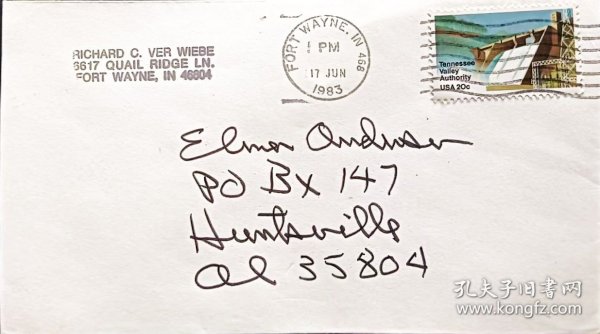 RICHARD C. VER WIEBE
6617 QUAIL RIDGE LN.
FORT WAYNE, IN 46804
FORT WAYNE, IN 468
PM
17 JUN
1983
Tennessee
Valley
Authority
USA 20c
Elmer Anderson
PO Bx 147
Huntsville
Al 35804
孔夫子旧书网
www.kongfz.com